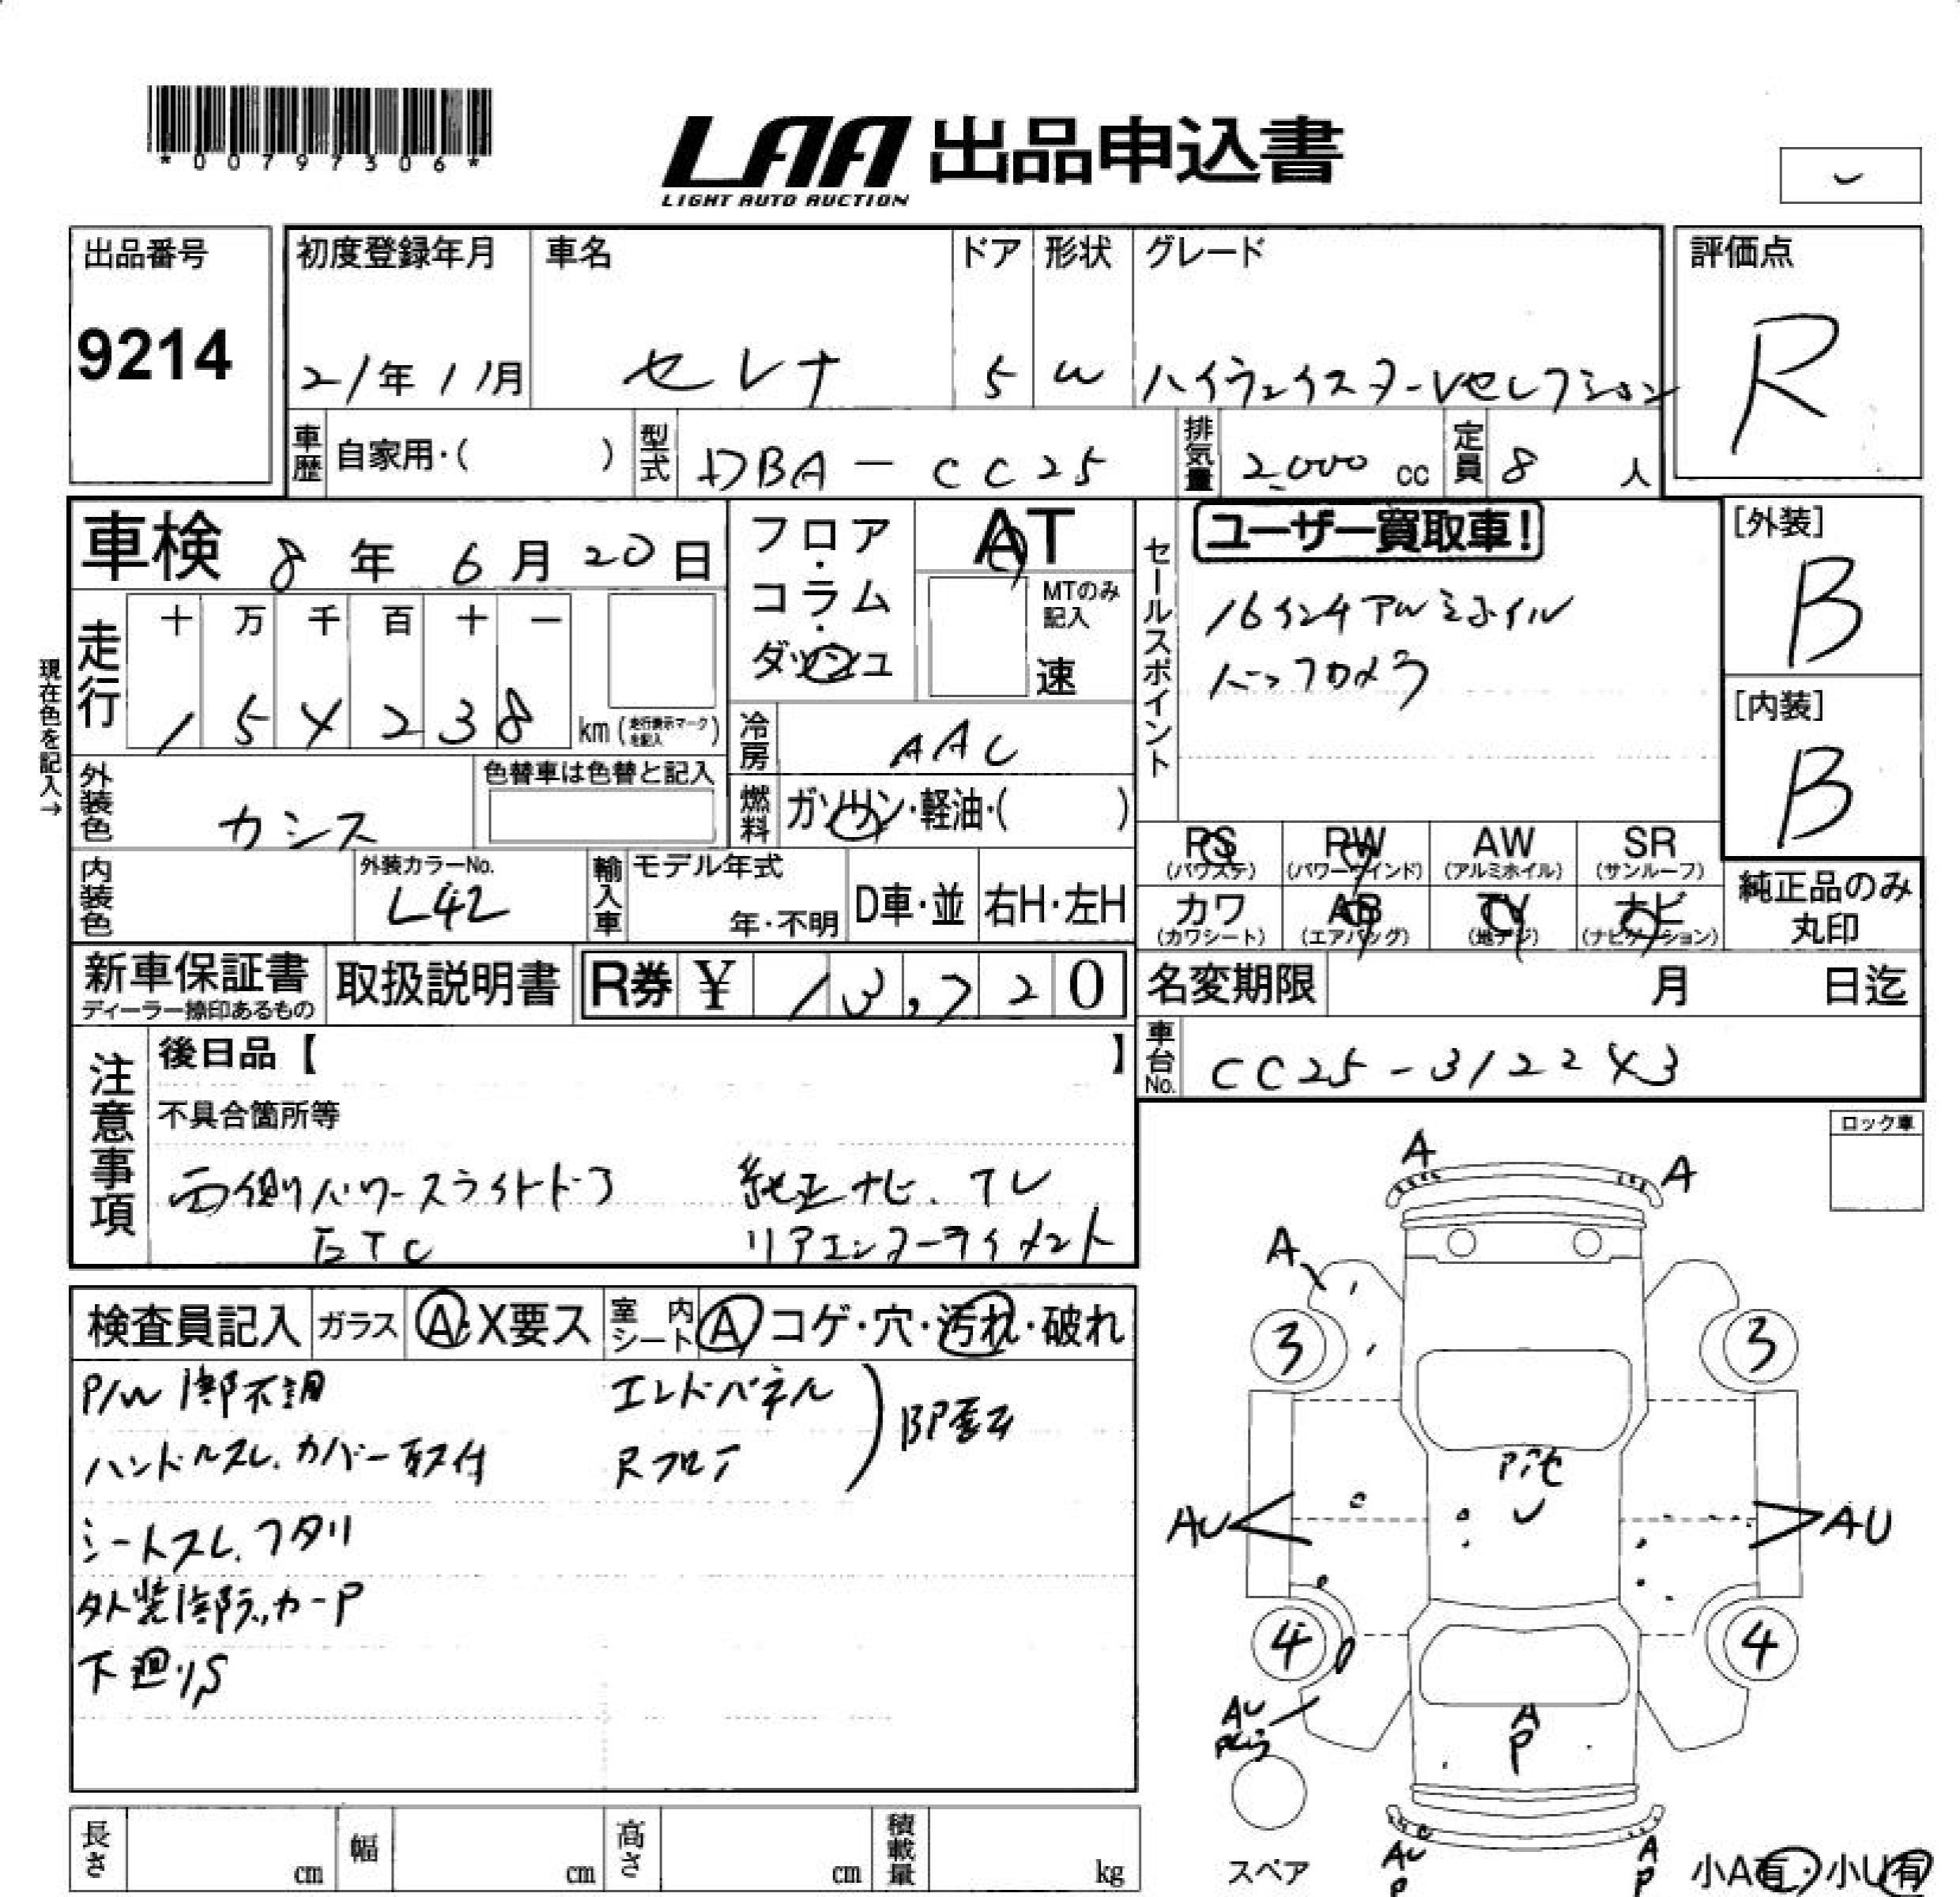 *00797306*
LAA 出品申込書
LIGHT AUTO AUCTION
出品番号
9214
初度登録年月
21年11月
車名
セレナ
ドア
5
形状
W
グレード
ハイウェイスターVセレクション
評価点
R
車歴 自家用・( )
型式 DBA-CC25
排気量 2,000 cc
定員 8 人
車検 8年 6月 20日
走行
十 万 千 百 十 一
1 5 4 2 3 8 km (走行表示マークを記入)
現在色を記入→
外装色 カシス
色替車は色替と記入
内装色
外装カラーNo.
L42
フロア・コラム・ダッシュ
AT
MTのみ記入
速
冷房 AAC
燃料 ガソリン・軽油・( )
輸入車
モデル年式
年・不明
D車・並
右H・左H
セールスポイント
ユーザー買取車!
16インチアルミホイル
バックカメラ
[外装]
B
[内装]
B
PS (パワステ)
PW (パワーウインド)
AW (アルミホイル)
SR (サンルーフ)
カワ (カワシート)
AB (エアバッグ)
TV (地デジ)
ナビ (ナビゲーション)
純正品のみ丸印
新車保証書
ディーラー捺印あるもの
取扱説明書
R券 ¥ 13,720
名変期限 月 日迄
車台No. CC25-312243
注意事項
後日品【 】
不具合箇所等
両側パワースライドドア 純正ナビ、テレ
ETC リアエンターテイメント
ロック車
検査員記入 ガラス A・X要ス 室内シート A コゲ・穴・汚れ・破れ
P/W 1部不調 エンドパネル
ハンドルスレ、カバー取付 Rフロア
シートスレ、フタリ
外装1部
下廻りS
A
A
A
3
3
AU
AU
4
4
AU
A
P
AU
P
A
P
スペア
小A有・小U有
長さ cm
幅 cm
高さ cm
積載量 kg